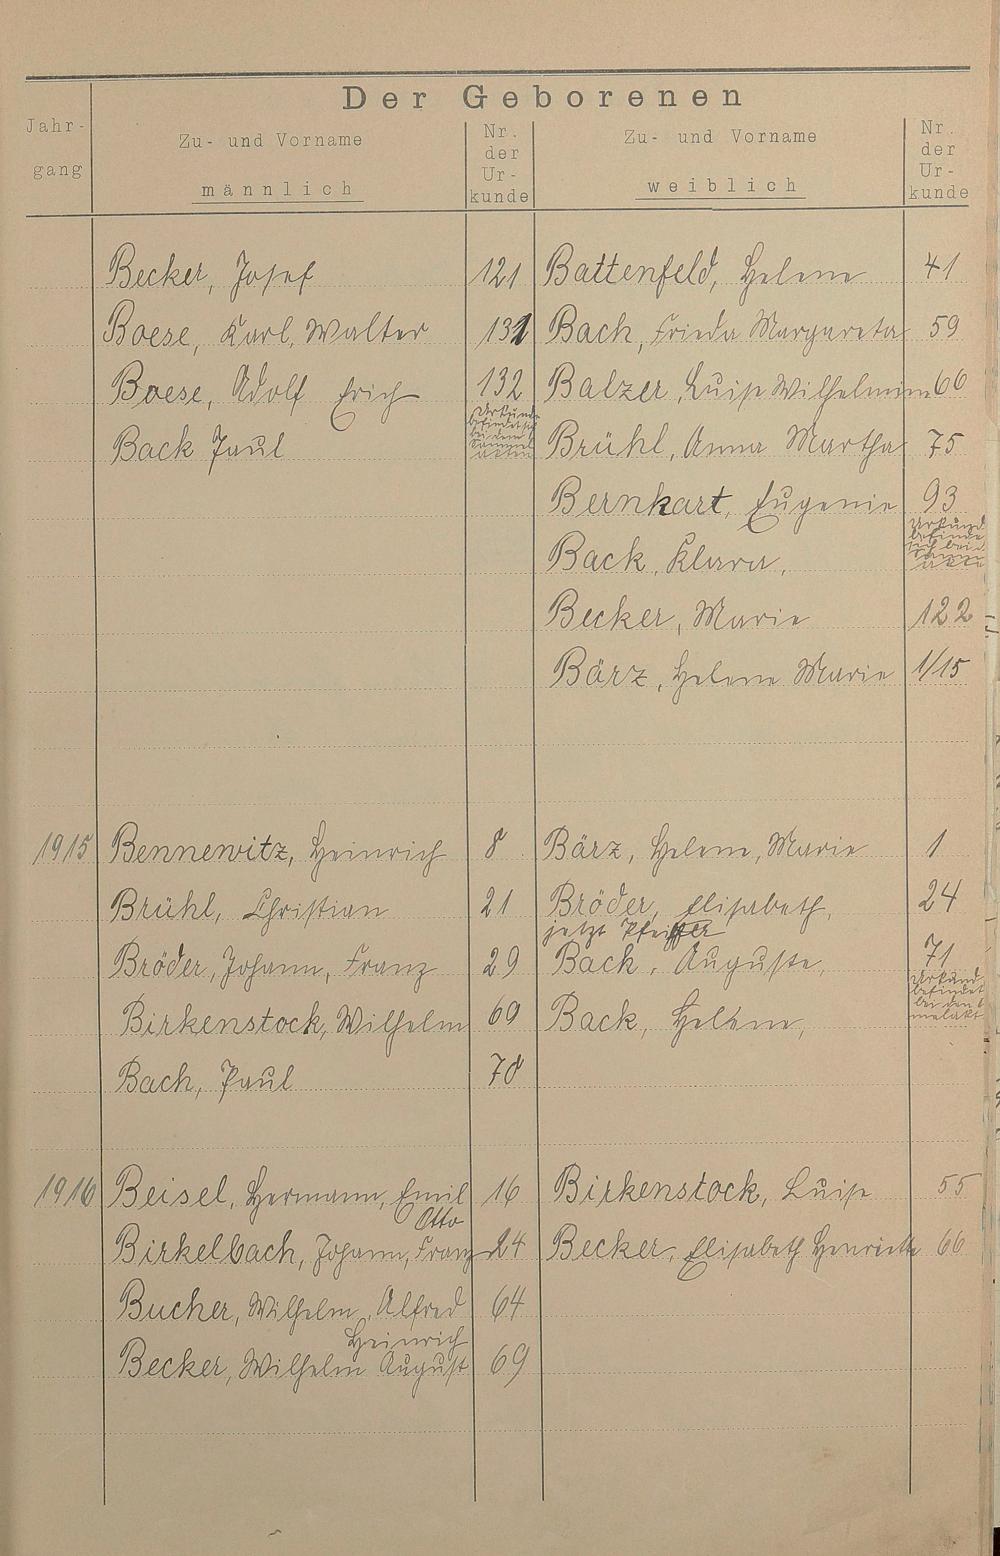 Der Geborenen
Jahr-
gang
Zu- und Vorname
männlich
Nr.
der
Ur-
kunde
Zu- und Vorname
weiblich
Nr.
der
Ur-
kunde
Becker, Josef 121 Battenfeld, Helene 41
Boese, Karl, Walter 131 Bach, Frieda Margareta 59
Boese, Adolf Erich 132 Balzer, Luise Wilhelmine 66
Back Paul Urkunde
befindet sich
bei den
Sammel
akten
Brühl, Anna Martha 75
Bernkart, Eugenie 93
Back, Klara, Urkund
befindet
sich bei d.
akte
Becker, Marie 122
Bärz, Helene Marie 1/15
1915 Bennewitz, Heinrich 8 Bärz, Helene, Marie 1
Brühl, Christian 21 Bröder, Elisabeth, 24
jetzt Pfeiffer
Bröder, Johann, Franz 29 Back, Auguste, 71
Birkenstock, Wilhelm 60 Back, Helene, Urkund
befindet
bei den
melakt
Bach, Paul 78
1916 Beisel, Hermann, Emil 16 Birkenstock, Luise 55
Otto
Birkelbach, Johann, Franz 24 Becker, Elisabeth Henriette 66
Bucher, Wilhelm, Alfred 64
Heinrich
Becker, Wilhelm August 69